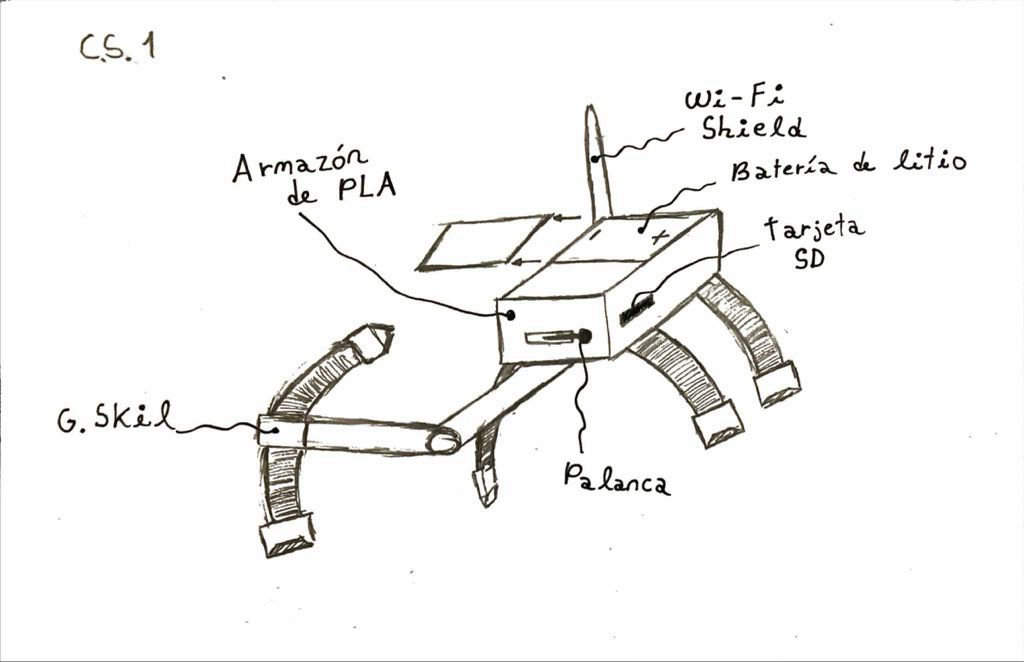 C.S. 1
Wi-Fi
Shield
Armazón
de PLA
Batería de litio
tarjeta
SD
G. SKil
Palanca